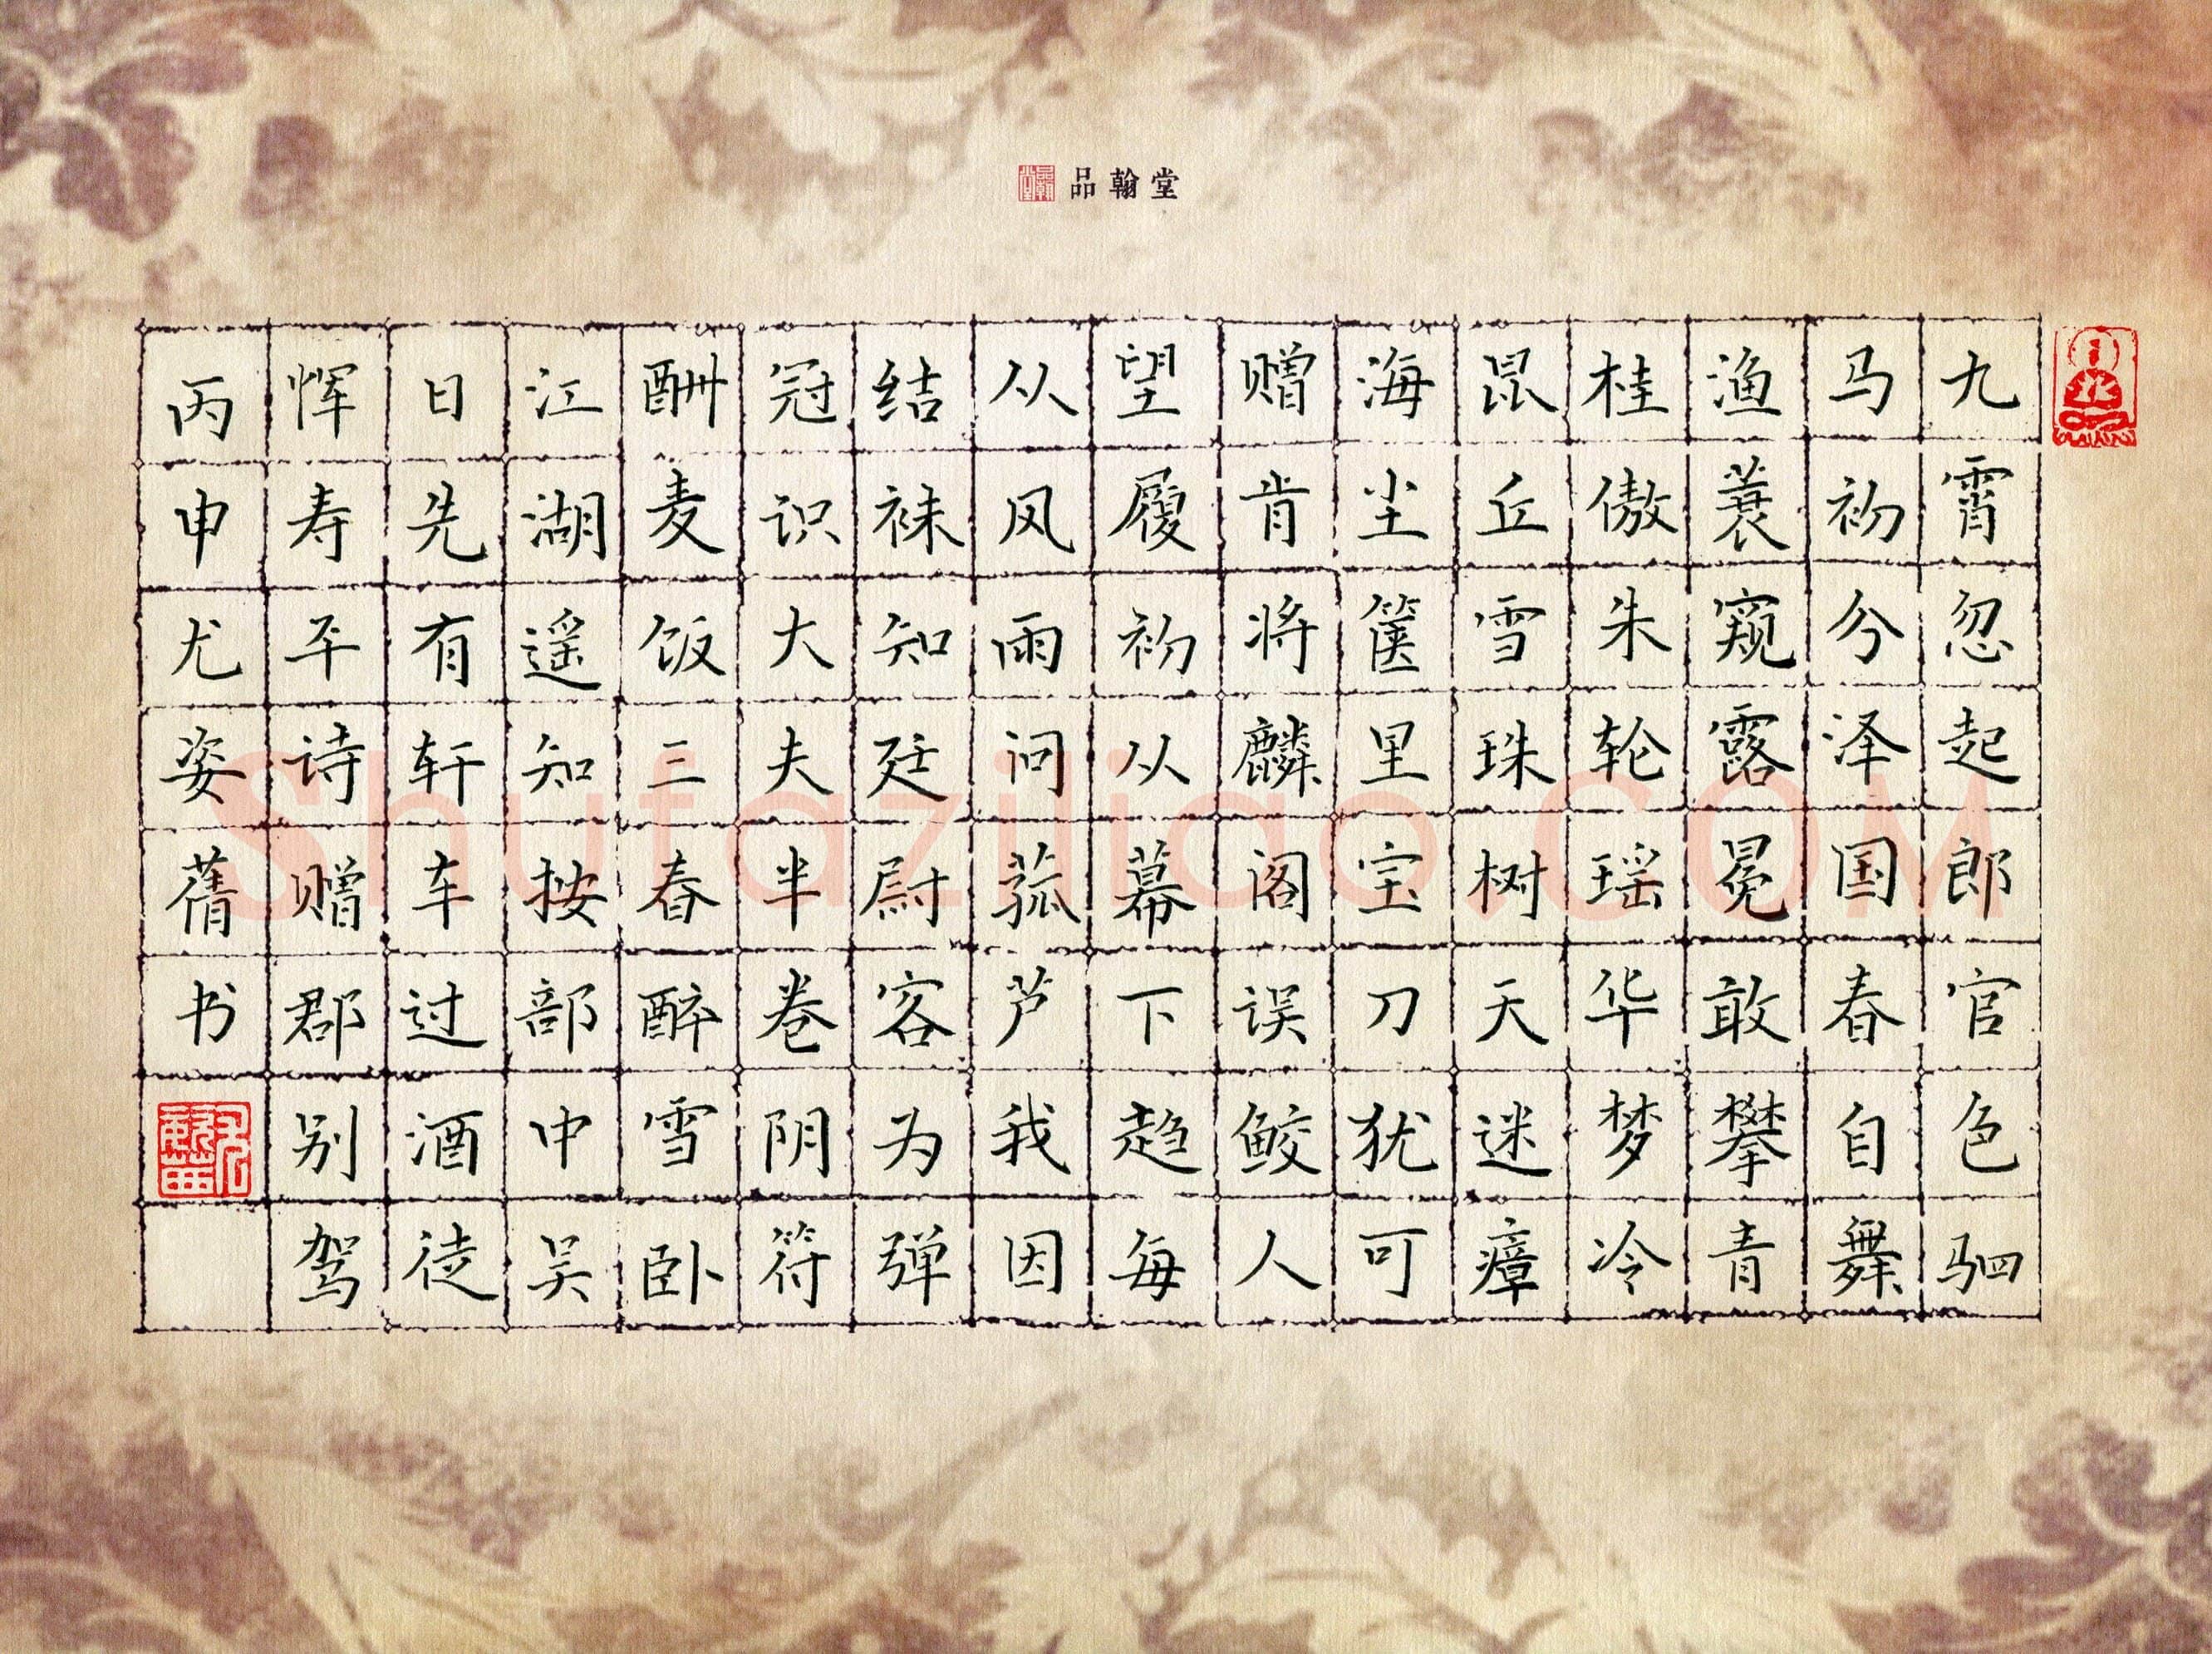 品翰堂
九霄忽起郎官色驷
马初兮泽国春自舞
渔蓑窥露冕敢攀青
桂傲朱轮瑶华梦冷
鼠丘雪珠树天迷瘴
海尘箧里宝刀犹可
赠肯将麟阁误鲛人
望履初从幕下趋每
从风雨问菰芦我因
结袜知廷尉客为弹
冠识大夫半卷阴符
酬麦饭三春醉雪卧
江湖遥知按部中吴
日先有轩车过酒徒
恽寿平诗赠郡别驾
丙申尤姿蒨书
Shufaziliao.COM